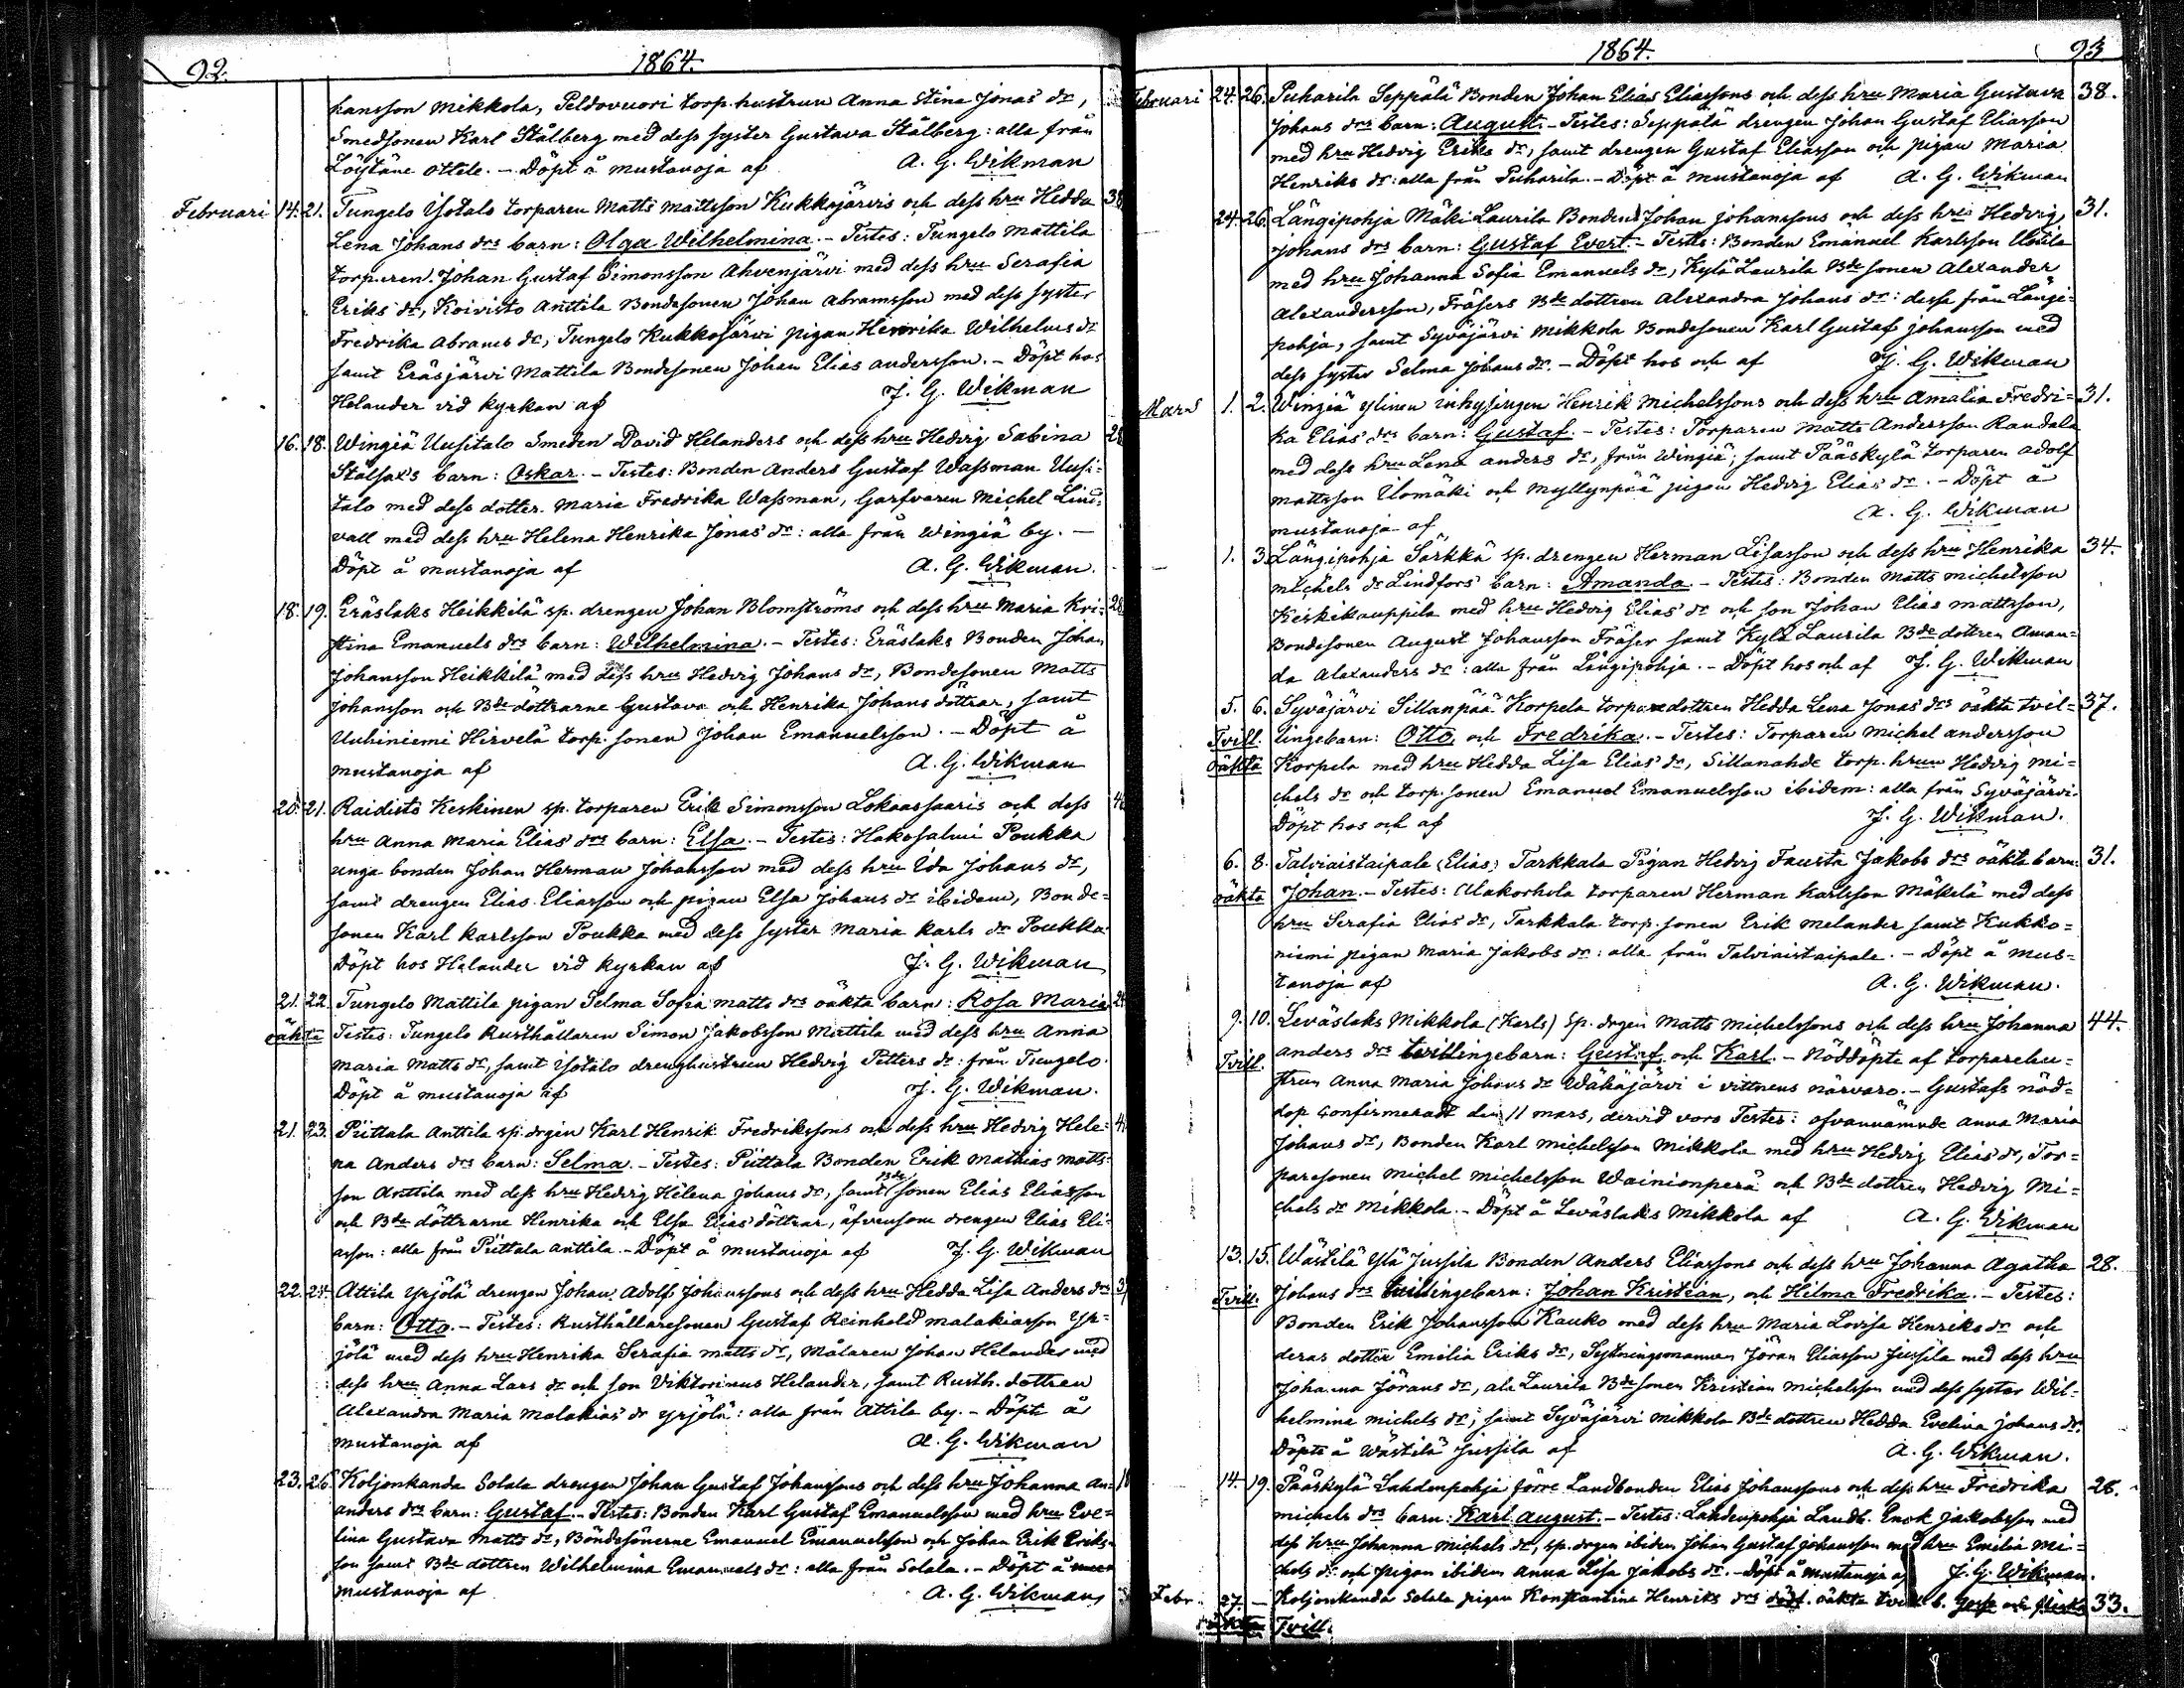 92.
1864.
hansson Mikkola, Peldovuori torp. hustrun Anna Stina Jonas dr,
Smedsonen Karl Stålberg med dess syster Gustava Stålberg: alla från
Löytäne Ottele. - Döpt å Mustanoja af A. G. Wikman
Februari 14. 21. Tungelo Yotalo torparen Matts Mattsson Kukkojärvis och dess hru Hedda 38
Lena Johans drs barn: Olga Wilhelmina. - Testes: Tungelo Mattila
torparen Johan Gustaf Simonsson Ahvenjärvi med dess hru Serafia
Eriks dr, Koivisto Anttila Bondesonen Johan Abramsson med dess syster
Fredrika Abrams dr, Tungelo Kukkojärvi pigan Henrika Wilhelms dr
samt Eräsjärvi Mattila Bondesonen Johan Elias Andersson. - Döpt hos
Helander vid kyrkan af J. G. Wikman
16. 18. Wingiä Uusitalo Smeden David Helanders och dess hru Hedvig Sabina 28
Stålsax's barn: Oskar. - Testes: Bonden Anders Gustaf Wassman Uusi=
talo med dess dotter Maria Fredrika Wassman, Garfvaren Michel Lind=
vall med dess hru Helena Henrika Jonas dr: alla från Wingiä by. -
Döpt å Mustanoja af A. G. Wikman.
18. 19. Eräslaks Heikkilä sp. drengen Johan Blomströms och dess hru Maria Kri= 28
stina Emanuels drs barn: Wilhelmina. - Testes: Eräslaks Bonden Johan
Johansson Heikkilä med dess hru Hedvig Johans dr, Bondesonen Matts
Johansson och Bde döttrarne Gustava och Henrika Johans döttrar, samt
Uuhiniemi Hirvelä torp. sonen Johan Emanuelsson. - Döpt å
Mustanoja af A. G. Wikman
20. 21. Raidisto Keskinen sp. torparen Erik Simonsson Lokaassaaris och dess
hru Anna Maria Elias drs barn: Elsa. - Testes: Hakosalmi Poukka
unga bonden Johan Herman Johansson med dess hru Ida Johans dr,
samt drengen Elias Eliasson och pigan Elsa Johans dr ibidem, Bonde=
sonen Karl Karlsson Poukka med dess syster Maria Karls dr Poukka.
Döpt hos Helander vid kyrkan af J. G. Wikman
21. 22. Tungelo Mattila pigan Selma Sofia Matts drs oäkta barn: Rosa Maria.
oäkta Testes: Tungelo Rusthållaren Simon Jakobsson Mattila med dess hru Anna
Maria Matts dr, samt Yotalo drenghustrun Hedvig Petters dr: från Tungelo.
Döpt å Mustanoja af J. G. Wikman.
21. 23. Piittala Anttila sp. drgen Karl Henrik Fredrikssons och dess hru Hedvig Hele=
na Anders drs barn: Selma. - Testes: Piittala Bonden Erik Mathias Matts=
son Anttila med dess hru Hedvig Helena Johans dr, samt Bde sonen Elias Eliasson
och Bde döttrarne Henrika och Elsa Elias döttrar, äfvensom drengen Elias Eli=
asson: alla från Piittala Anttila. - Döpt å Mustanoja af J. G. Wikman
22. 24. Attila Yrjölä drengen Johan Adolf Johanssons och dess hru Hedda Lisa Anders drs
barn: Otto. - Testes: Rusthållaresonen Gustaf Reinhold Malakiasson Yr=
jölä med dess hru Henrika Serafia Matts dr, Målaren Johan Helander med
dess hru Anna Lars dr och son Viktorinus Helander, samt Rusth. dottren
Alexandra Maria Malakias dr Yrjölä: alla från Attila by. - Döpt å
Mustanoja af A. G. Wikman
23. 26. Koljonkanda Solala drengen Johan Gustaf Johanssons och dess hru Johanna An=
anders drs barn: Gustaf. - Testes: Bonden Karl Gustaf Emanuelsson med hru Eve=
lina Gustava Matts dr, Bondesönerne Emanuel Emanuelsson och Johan Erik Eriks=
son samt Bde dottren Wilhelmina Emanuels dr: alla från Solala. - Döpt å
Mustanoja af A. G. Wikman
1864.
93
Februari 24. 26. Puharila Seppälä Bonden Johan Elias Eliassons och dess hru Maria Gustava 38.
Johans drs barn: August. - Testes: Seppälä drengen Johan Gustaf Eliasson
med hru Hedvig Eriks dr, samt drengen Gustaf Eliasson och pigan Maria
Henriks dr: alla från Puharila. - Döpt å Mustanoja af A. G. Wikman
24. 26. Längipohja Mäki Laurila Bonden Johan Johanssons och dess hru Hedvig 31.
Johans drs barn: Gustaf Evert. - Testes: Bonden Emanuel Karlsson Uotila
med hru Johanna Sofia Emanuels dr, Kylä Laurila Bde sonen Alexander
Alexandersson, Fräsers Bde dottren Alexandra Johans dr: desse från Längi=
pohja, samt Syväjärvi Mikkola Bondesonen Karl Gustaf Johansson med
dess syster Selma Johans dr. - Döpt hos och af J. G. Wikman
Mars 1. 2. Wingiä Ylinen inhysingen Henrik Michelssons och dess hru Amalia Fredri= 31.
ka Elias drs barn: Gustaf. - Testes: Torparen Matts Andersson Randala
med dess hru Lena Anders dr, från Wingiä, samt Pääskylä torparen Adolf
Mattsson Ilomäki och Myllynpää pigan Hedvig Elias dr. - Döpt å
Mustanoja af A. G. Wikman
1. 3. Längipohja Särkkä sp. drengen Herman Lisasson och dess hru Henrika 34.
Michels dr Lindfors' barn: Amanda. - Testes: Bonden Matts Michelsson
Keskikauppila med hru Hedvig Elias dr och son Johan Elias Mattsson,
Bondesonen August Johansson Fräser samt Kylä Laurila Bde dottren Aman=
da Alexanders dr: alla från Längipohja. - Döpt hos och af J. G. Wikman
5. 6. Syväjärvi Sillanpää Korpela torparedottren Hedda Lena Jonas drs oäkta tvil= 37.
Tvill. lingebarn: Otto och Fredrika. - Testes: Torparen Michel Andersson
oäkta Korpela med hru Hedda Lisa Elias dr, Sillanahde torp. hrun Hedvig Mi=
chels dr och torp. sonen Emanuel Emanuelsson ibidem: alla från Syväjärvi.
Döpt hos och af J. G. Wikman.
6. 8. Talviaistaipale (Elias) Tarkkala Pigan Hedvig Fausta Jakobs drs oäkta barn: 31.
oäkta Johan. - Testes: Alakorhola torparen Herman Karlsson Mäkelä med dess
hru Serafia Elias dr, Tarkkala torp. sonen Erik Melander samt Kukko=
niemi pigan Maria Jakobs dr: alla från Talviaistaipale. - Döpt å Mus=
tanoja af A. G. Wikman.
9. 10. Leväslaks Mikkola (Karls) sp. drgen Matts Michelssons och dess hru Johanna 44.
Tvill. Anders drs tvillingebarn: Gustaf och Karl. - Nöddöpte af torparehu=
strun Anna Maria Johans dr Wähäjärvi i vittnens närvaro. - Gustafs nöd=
dop confirmeradt den 11 mars, dervid voro Testes: ofvannämnde Anna Maria
Johans dr, Bonden Karl Michelsson Mikkola med hru Hedvig Elias dr, Tor=
paresonen Michel Michelsson Wainionperä och Bde dottren Hedvig Mi=
chels dr Mikkola. - Döpt å Leväslaks Mikkola af A. G. Wikman
13. 15. Wästilä Ylä Jussila Bonden Anders Eliassons och dess hru Johanna Agatha 28.
Tvill. Johans drs tvillingebarn: Johan Kristian, och Hilma Fredrika. - Testes:
Bonden Erik Johansson Kauko med dess hru Maria Lovisa Henriks dr och
deras dotter Emilia Eriks dr, Sytningsmannen Jöran Eliasson Jussila med dess hru
Johanna Jörans dr, Ala Laurila Bde sonen Kristian Michelsson med dess syster Wil=
helmina Michels dr, samt Syväjärvi Mikkola Bde dottren Hedda Evelina Johans dr.
Döpte å Wästilä Jussila af A. G. Wikman.
14. 19. Pääskylä Lahdenpohja förre Landbonden Elias Johanssons och dess hru Fredrika 28.
Michels drs barn: Karl August. - Testes: Lahdenpohja Landb. Enok Jakobsson med
dess hru Johanna Michels dr, sp. drgen ibidem Johan Gustaf Johansson med hru Emilia Mi=
chels dr och pigan ibidem Anna Lisa Jakobs dr. - Döpt å Mustanoja af J. G. Wikman.
Febr. 27. - Koljonkanda Solala pigan Konstantina Henriks drs dödf. oäkta tvill b. Gosse och flicka 33.
oäkta Tvill.